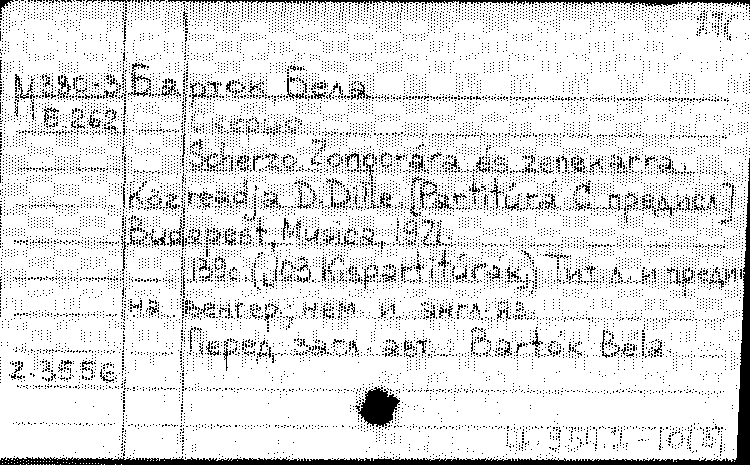 М 280-3 Барток Бела
Б 262 Скерцо
Scherzo Zongorára és zenekarra.
Közreadja D. Dille. [Partitúra С предисл]
Budapest, Musica, 1971.
139с. (Kispartitúrák) Тит л. и предис
на венгер; нем и англ яз.
Перед загл авт. Bartók Bela
2.3556